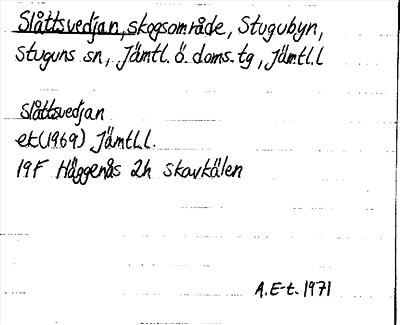 Slåttsvedjan, skogsområde, Stugubyn,
Stuguns sn, Jämtl. ö. doms. tg, Jämtl.l
Slåttsvedjan
ek(1969) Jämtl.l.
19F Häggenås 2h Skavkälen
A.E-t. 1971